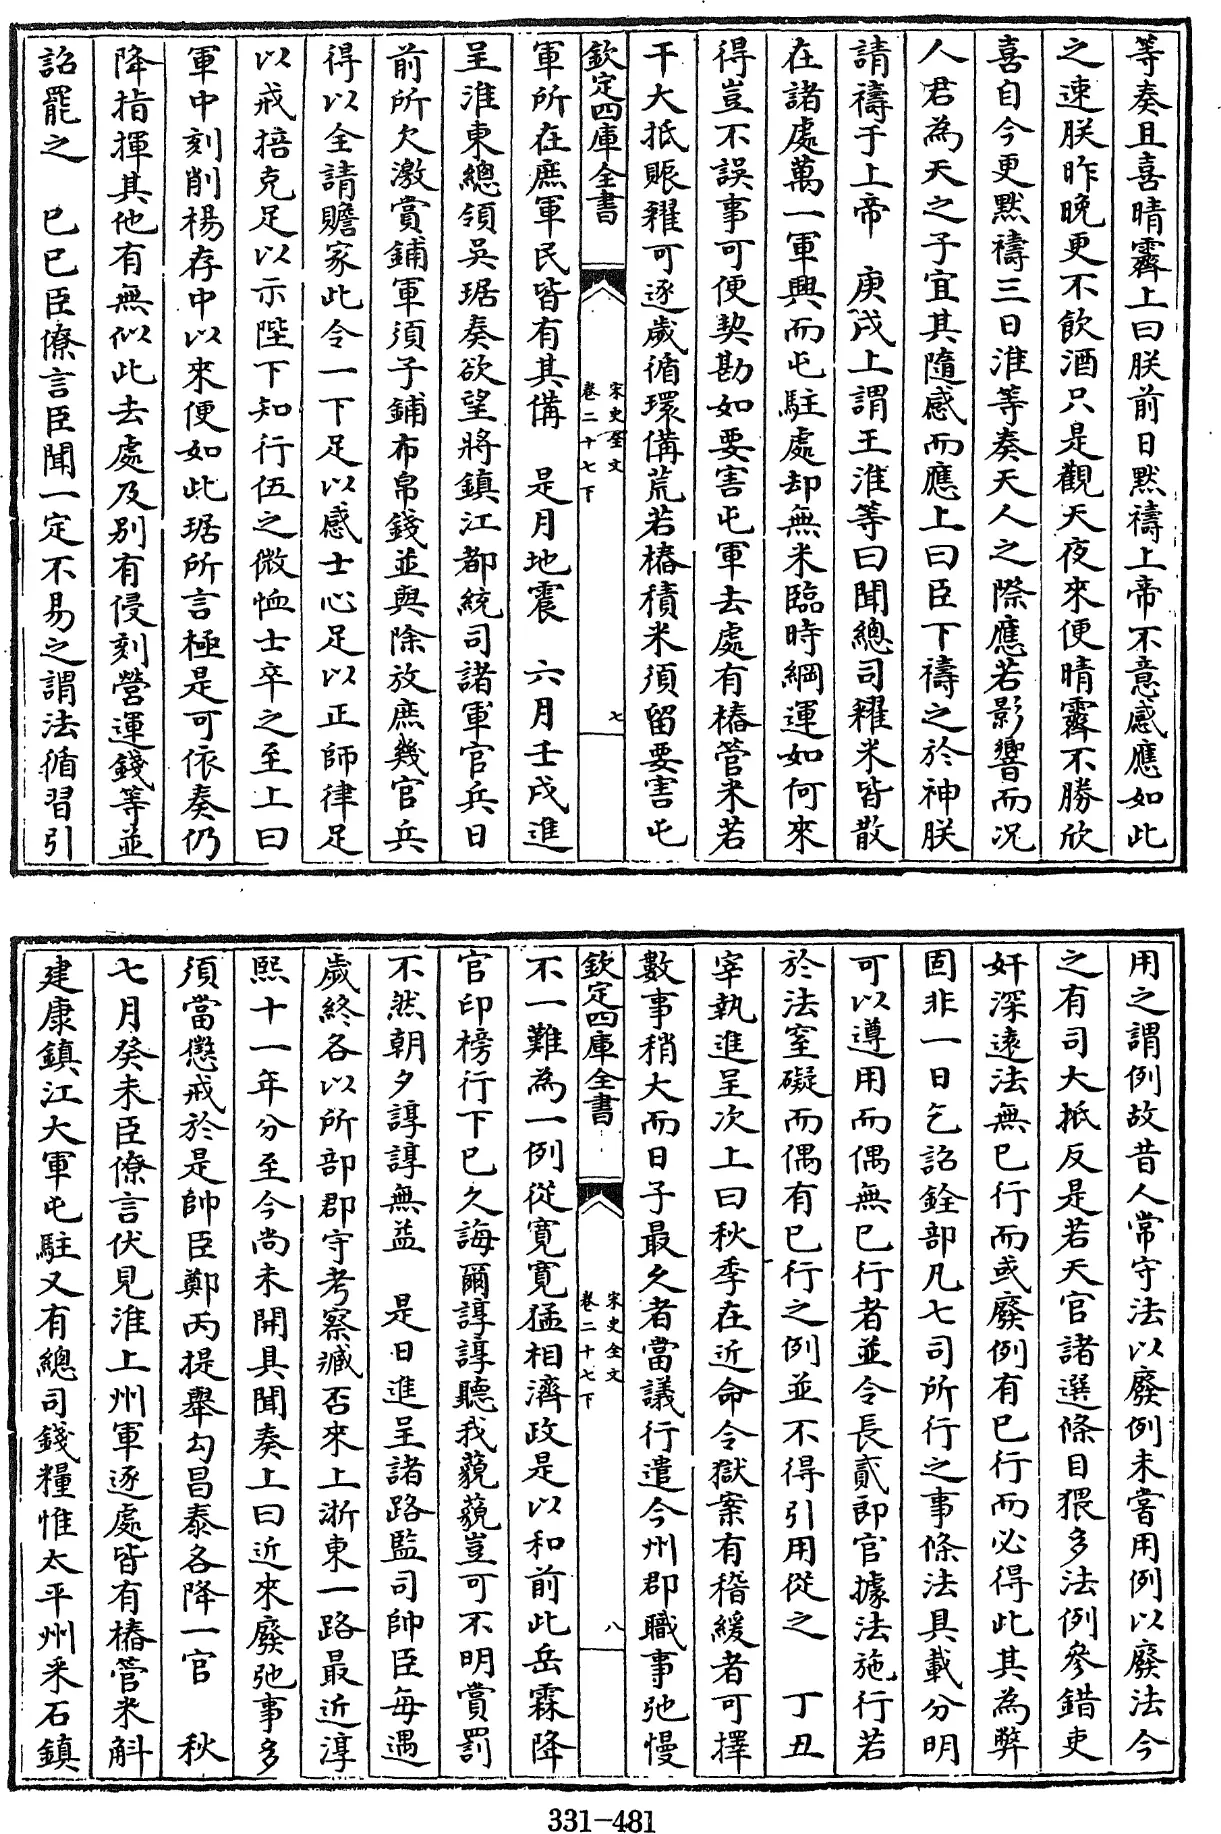 等奏且喜晴霽上曰朕前日黙禱上帝不意感應如此
之速朕昨晚更不飲酒只是觀天夜來便晴霽不勝欣
喜自今更黙禱三日淮等奏天人之際應若影響而況
人君為天之子宜其隨感而應上曰臣下禱之於神朕
請禱于上帝　庚戌上謂王淮等曰聞總司糴米皆散
在諸處萬一軍興而屯駐處却無米臨時綱運如何來
得豈不誤事可便契勘如要害屯軍去處有樁管米若
干大抵賑糴可逐歲循環備荒若樁積米須留要害屯
欽定四庫全書
宋史全文
卷二十七下
七
軍所在庶軍民皆有其備　是月地震　六月壬戌進
呈淮東總領吳琚奏欲望將鎮江都統司諸軍官兵日
前所欠激賞鋪軍須子鋪布帛錢並與除放庶幾官兵
得以全請贍家此令一下足以感士心足以正師律足
以戒掊克足以示陛下知行伍之微恤士卒之至上曰
軍中刻削楊存中以來便如此琚所言極是可依奏仍
降指揮其他有無似此去處及别有侵刻營運錢等並
詔罷之　己巳臣僚言臣聞一定不易之謂法循習引
用之謂例故昔人常守法以廢例未嘗用例以廢法今
之有司大抵反是若天官諸選條目猥多法例參錯吏
奸深遠法無已行而或廢例有已行而必得此其為弊
固非一日乞詔銓部凡七司所行之事條法具載分明
可以遵用而偶無已行者並令長貳郎官據法施行若
於法窒礙而偶有已行之例並不得引用從之　丁丑
宰執進呈次上曰秋季在近命令獄案有稽緩者可擇
數事稍大而日子最久者當議行遣今州郡職事弛慢
欽定四庫全書
宋史全文
卷二十七下
八
不一難為一例從寛寛猛相濟政是以和前此岳霖降
官印榜行下已久誨爾諄諄聽我藐藐豈可不明賞罰
不然朝夕諄諄無益　是日進呈諸路監司帥臣每遇
歲終各以所部郡守考察臧否來上浙東一路最近淳
熙十一年分至今尚未開具聞奏上曰近來廢弛事多
須當懲戒於是帥臣鄭丙提舉勾昌泰各降一官　秋
七月癸未臣僚言伏見淮上州軍逐處皆有樁管米斛
建康鎮江大軍屯駐又有總司錢糧惟太平州采石鎮
331-481